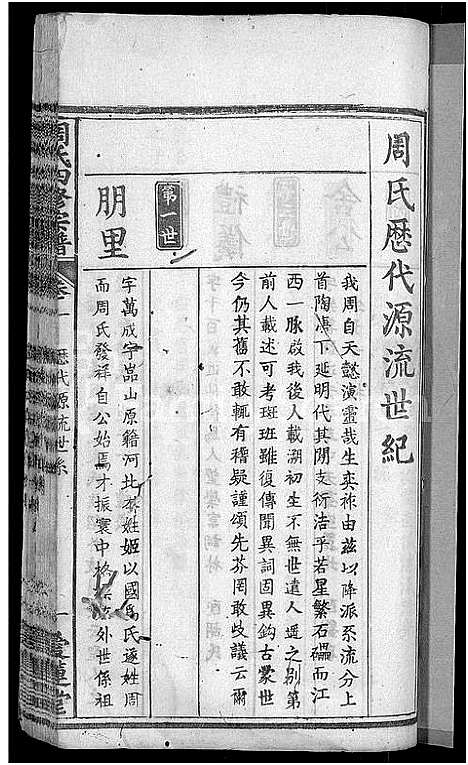 周氏歷代源流世紀
我周自天懿演靈哉生奕祚由茲以降派系流分上
首陶下延明代其間支衍浩乎若星繁石磥而江
西一脉啟我後人載溯初生不無世遠人遥之別第
前人載述可考班班雖復傳聞異詞固異鈎古蒙世
今仍其舊不敢輒有稽疑謹頌先芬罔敢歧議云爾
第一世
朋里
字萬成字嵓山原籍河北姓姬以國為氏遂姓周
而周氏發祥自公始焉才振寰中外世係祖
周氏四修宗譜
卷一
歷代源流世系
一
愛蓮堂